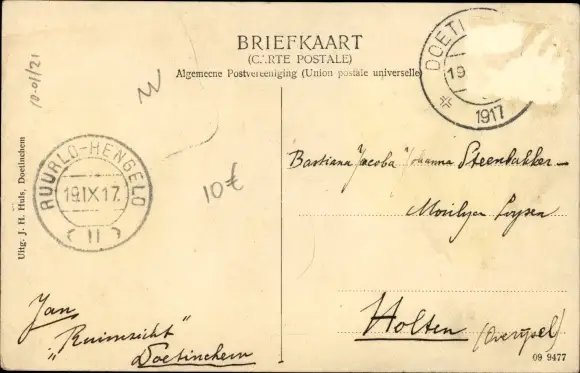 BRIEFKAART
(CARTE POSTALE)
Algemeene Postvereeniging (Union postale universelle)
DOETI
19
1917
10-01/21
Uitg. J. H. Huls, Doetinchem
RUURLO-HENGELO
19 IX 17
11
10€
Bastiana Jacoba Johanna Steenbakker
Holten (Overijsel)
Jan
"Ruimzicht"
Doetinchem
09 9477